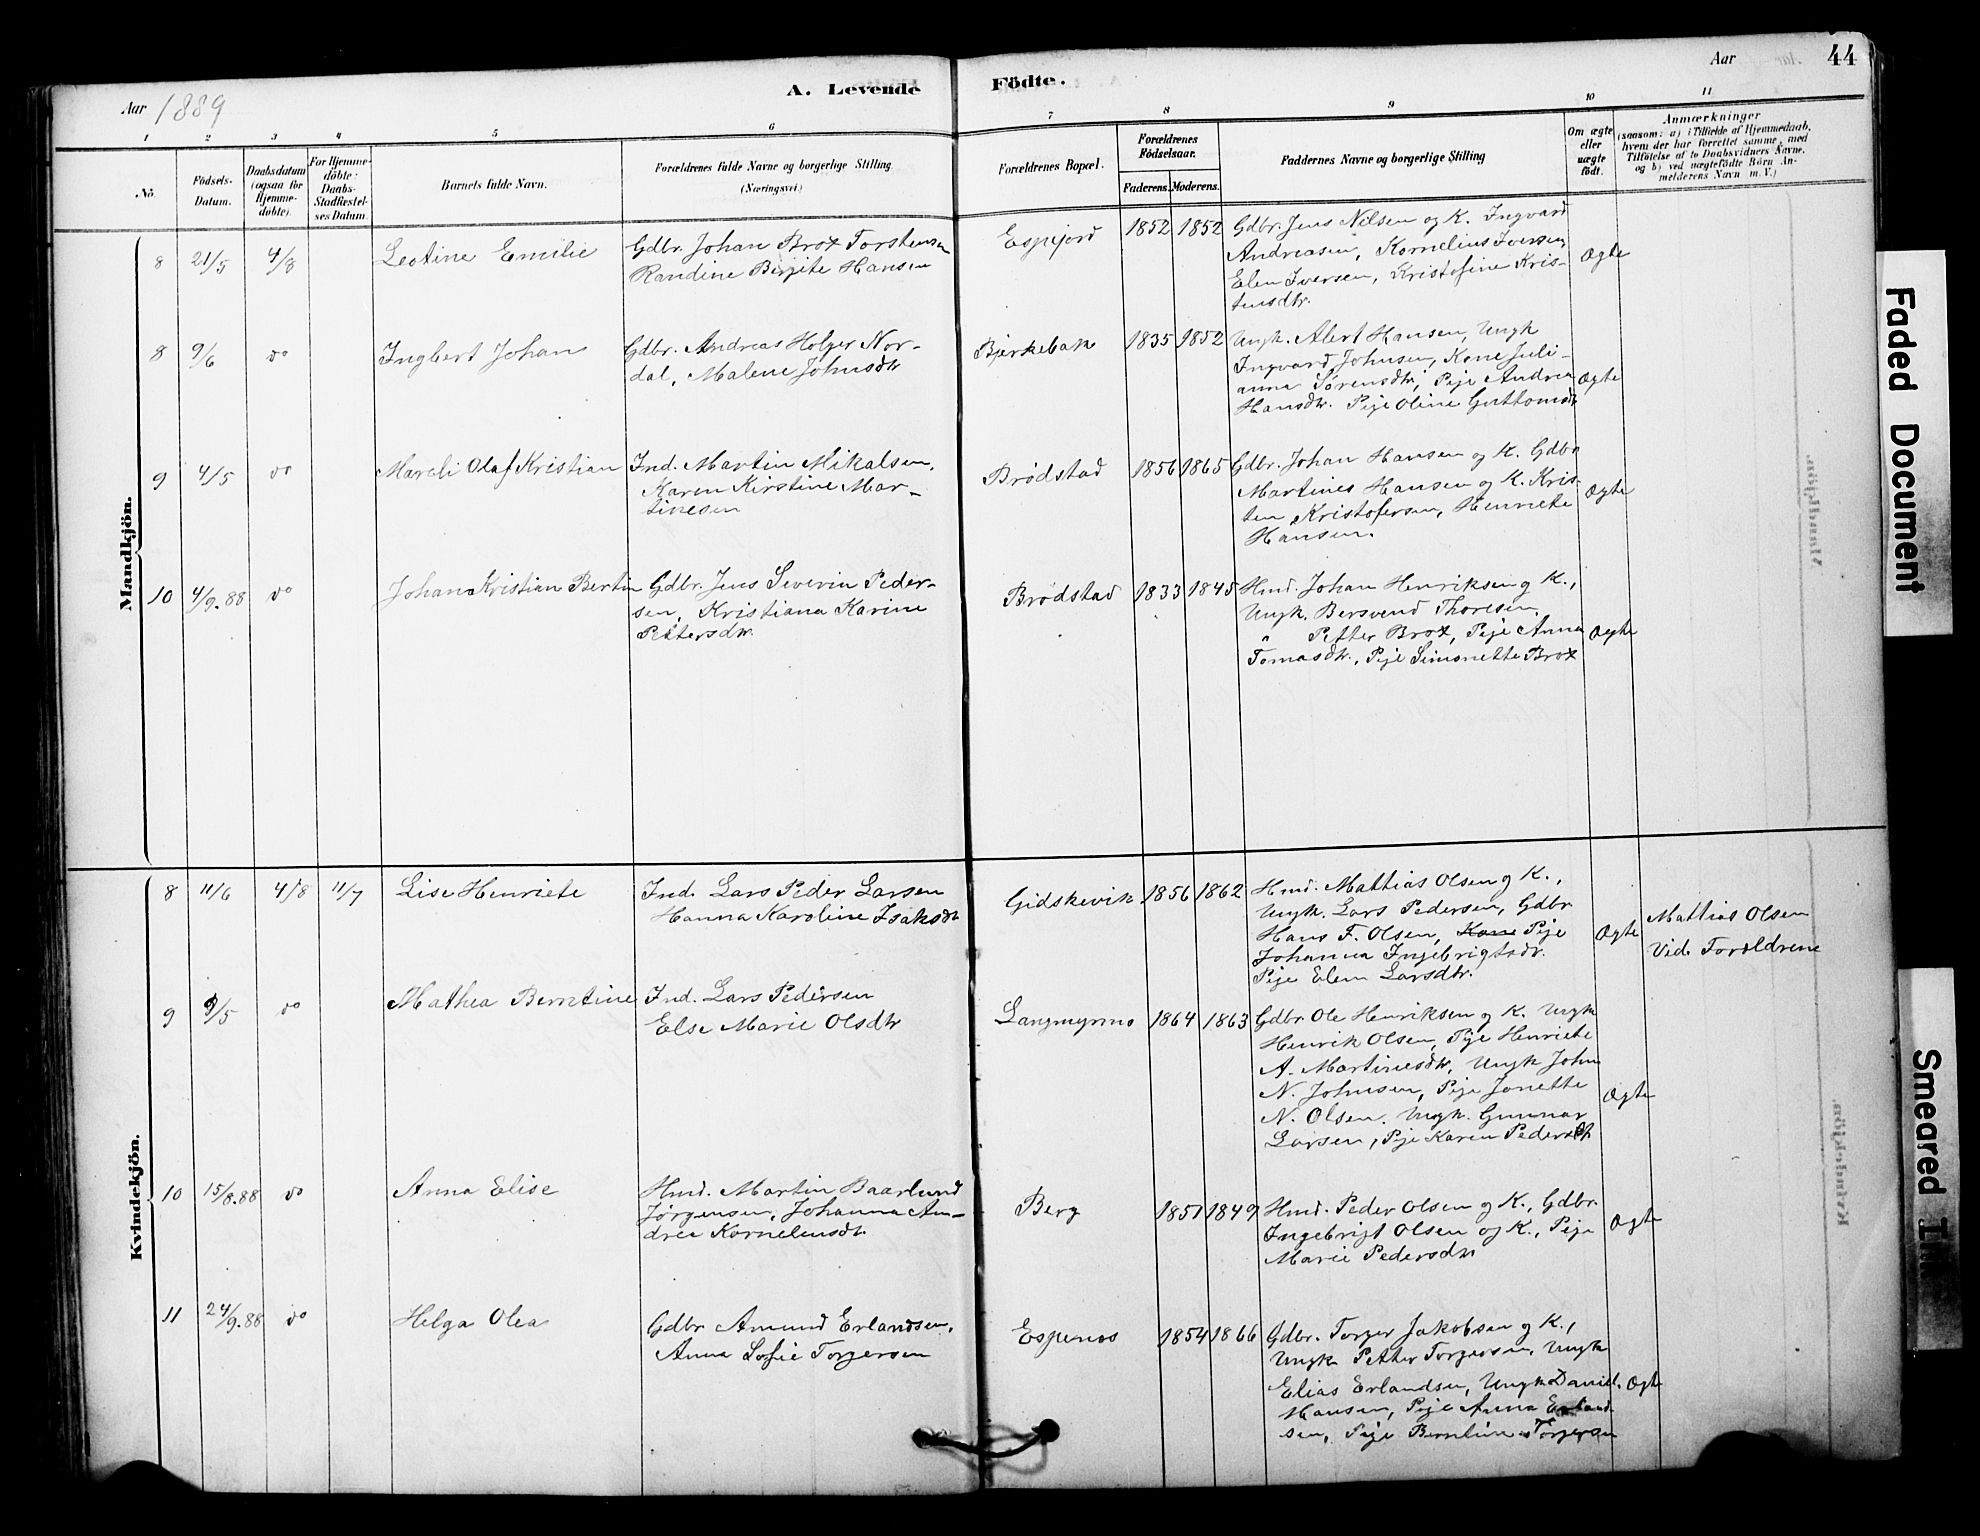 44
Aar 1889
A. Levende
Födte.
Aar
1 2 3 4 5 6 7 8 9 10 11
No.
Födsels-
Datum.
Daabsdatum
(ogsaa for
Hjemme-
döbte).
For Hjemme-
döbte:
Daabs-
Stadfæstel-
ses Datum.
Barnets fulde Navn.
Forældrenes fulde Navne og borgerlige Stilling
(Næringsvei.)
Forældrenes Bopæl.
Forældrenes
Födselsaar.
Faderens.
Moderens.
Faddernes Navne og borgerlige Stilling
Om ægte
eller
uægte
födt.
Anmærkninger
(saasom: a) i Tilfælde af Hjemmedaab,
hvem der har forrettet samme, med
Tilföielse af to Daabsvidners Navne,
og b) ved uægtefödte Börn An-
melderens Navn m. V.)
Mandkjön.
8 21/5 4/8 Leotine Emilie
Gdbr. Johan Brox Torstensen
Randine Birgite Hansen
Espejord 1852 1852
Gdbr. Jens Nilsen og K. Ingvard
Andreasen, Kornelius Iversen
Elen Iversen, Kristofine Kris-
tensdtr.
Ægte
8 9/6 do Ingbert Johan
Gdbr. Andreas Holger Nor-
dal, Malene Johnsdtr
Bjerkebak 1835 1852
Ungk. Albert Hansen, Ungk
Ingvard Johnsen, Kone Juli-
anna Sørensdtr, Pige Andrea
Hansdtr. Pige Oline Guttomsdtr
Ægte
9 4/5 do Mareli Olaf Kristian
Ind. Martin Mikalsen,
Karen Kirstine Mar-
tinesen
Brødstad 1856 1865
Gdbr. Johan Hansen og K. Gdbr
Martines Hansen og K. Kris-
ten Kristofersen, Henriete
Hansen.
Ægte
10 4/9.88 do Johan Kristian Bertin
Gdbr. Jens Severin Peder-
sen, Kristiana Karine
Pettersdtr.
Brødstad 1833 1845
Hmd. Johan Henriksen og K.,
Ungk. Bersvend Thoresen
Petter Brox, Pige Anna
Tomasdtr., Pige Simonette Brox
Ægte
Kvindekjön.
8 11/6 4/8 11/7 Lise Henriete
Ind. Lars Peder Larsen
Hanna Karoline Isaksdtr
Gidskevik 1856 1862
Hmd. Mattias Olsen og K.,
Ungk. Lars Pedersen, Gdbr
Hans F. Olsen, Kone Pige
Johanna Ingebrigtsdtr.
Pige Elen Larsdtr.
Ægte
Mattias Olsen
Vid. Foreldrene
9 9/5 do Mathea Berntine
Ind. Lars Pedersen
Else Marie Olsdtr
Langmyrmo 1864 1863
Gdbr Ole Henriksen og K. Ungk
Henrik Olsen, Pige Henriete
A. Martinesdtr, Ungk John
N. Johnsen, Pige Jonette
N. Olsen. Ungk. Gunnar
Larsen, Pige Karen Pedersdtr
Ægte
10 15/8.88 do Anna Elise
Hmd. Martin Baarlund
Jørgensen, Johanna An-
drea Korneliusdtr.
Berg 1851 1849
Hmd. Peder Olsen og K., Gdbr.
Ingebrigt Olsen og K., Pige
Marie Pedersdtr
Ægte
11 24/9.88 do Helga Olea
Gdbr Amund Erlandsen,
Anna Sofie Torgersen
Espenes 1854 1866
Gdbr. Torger Jakobsen og K.,
Ungk Petter Torgersen, Ungk
Elias Erlandsen, Ungk Daniel
Hansen, Pige Anna Erland-
sen, Pige Berntine Torgersen
Ægte
Faded Document
Smeared Ink